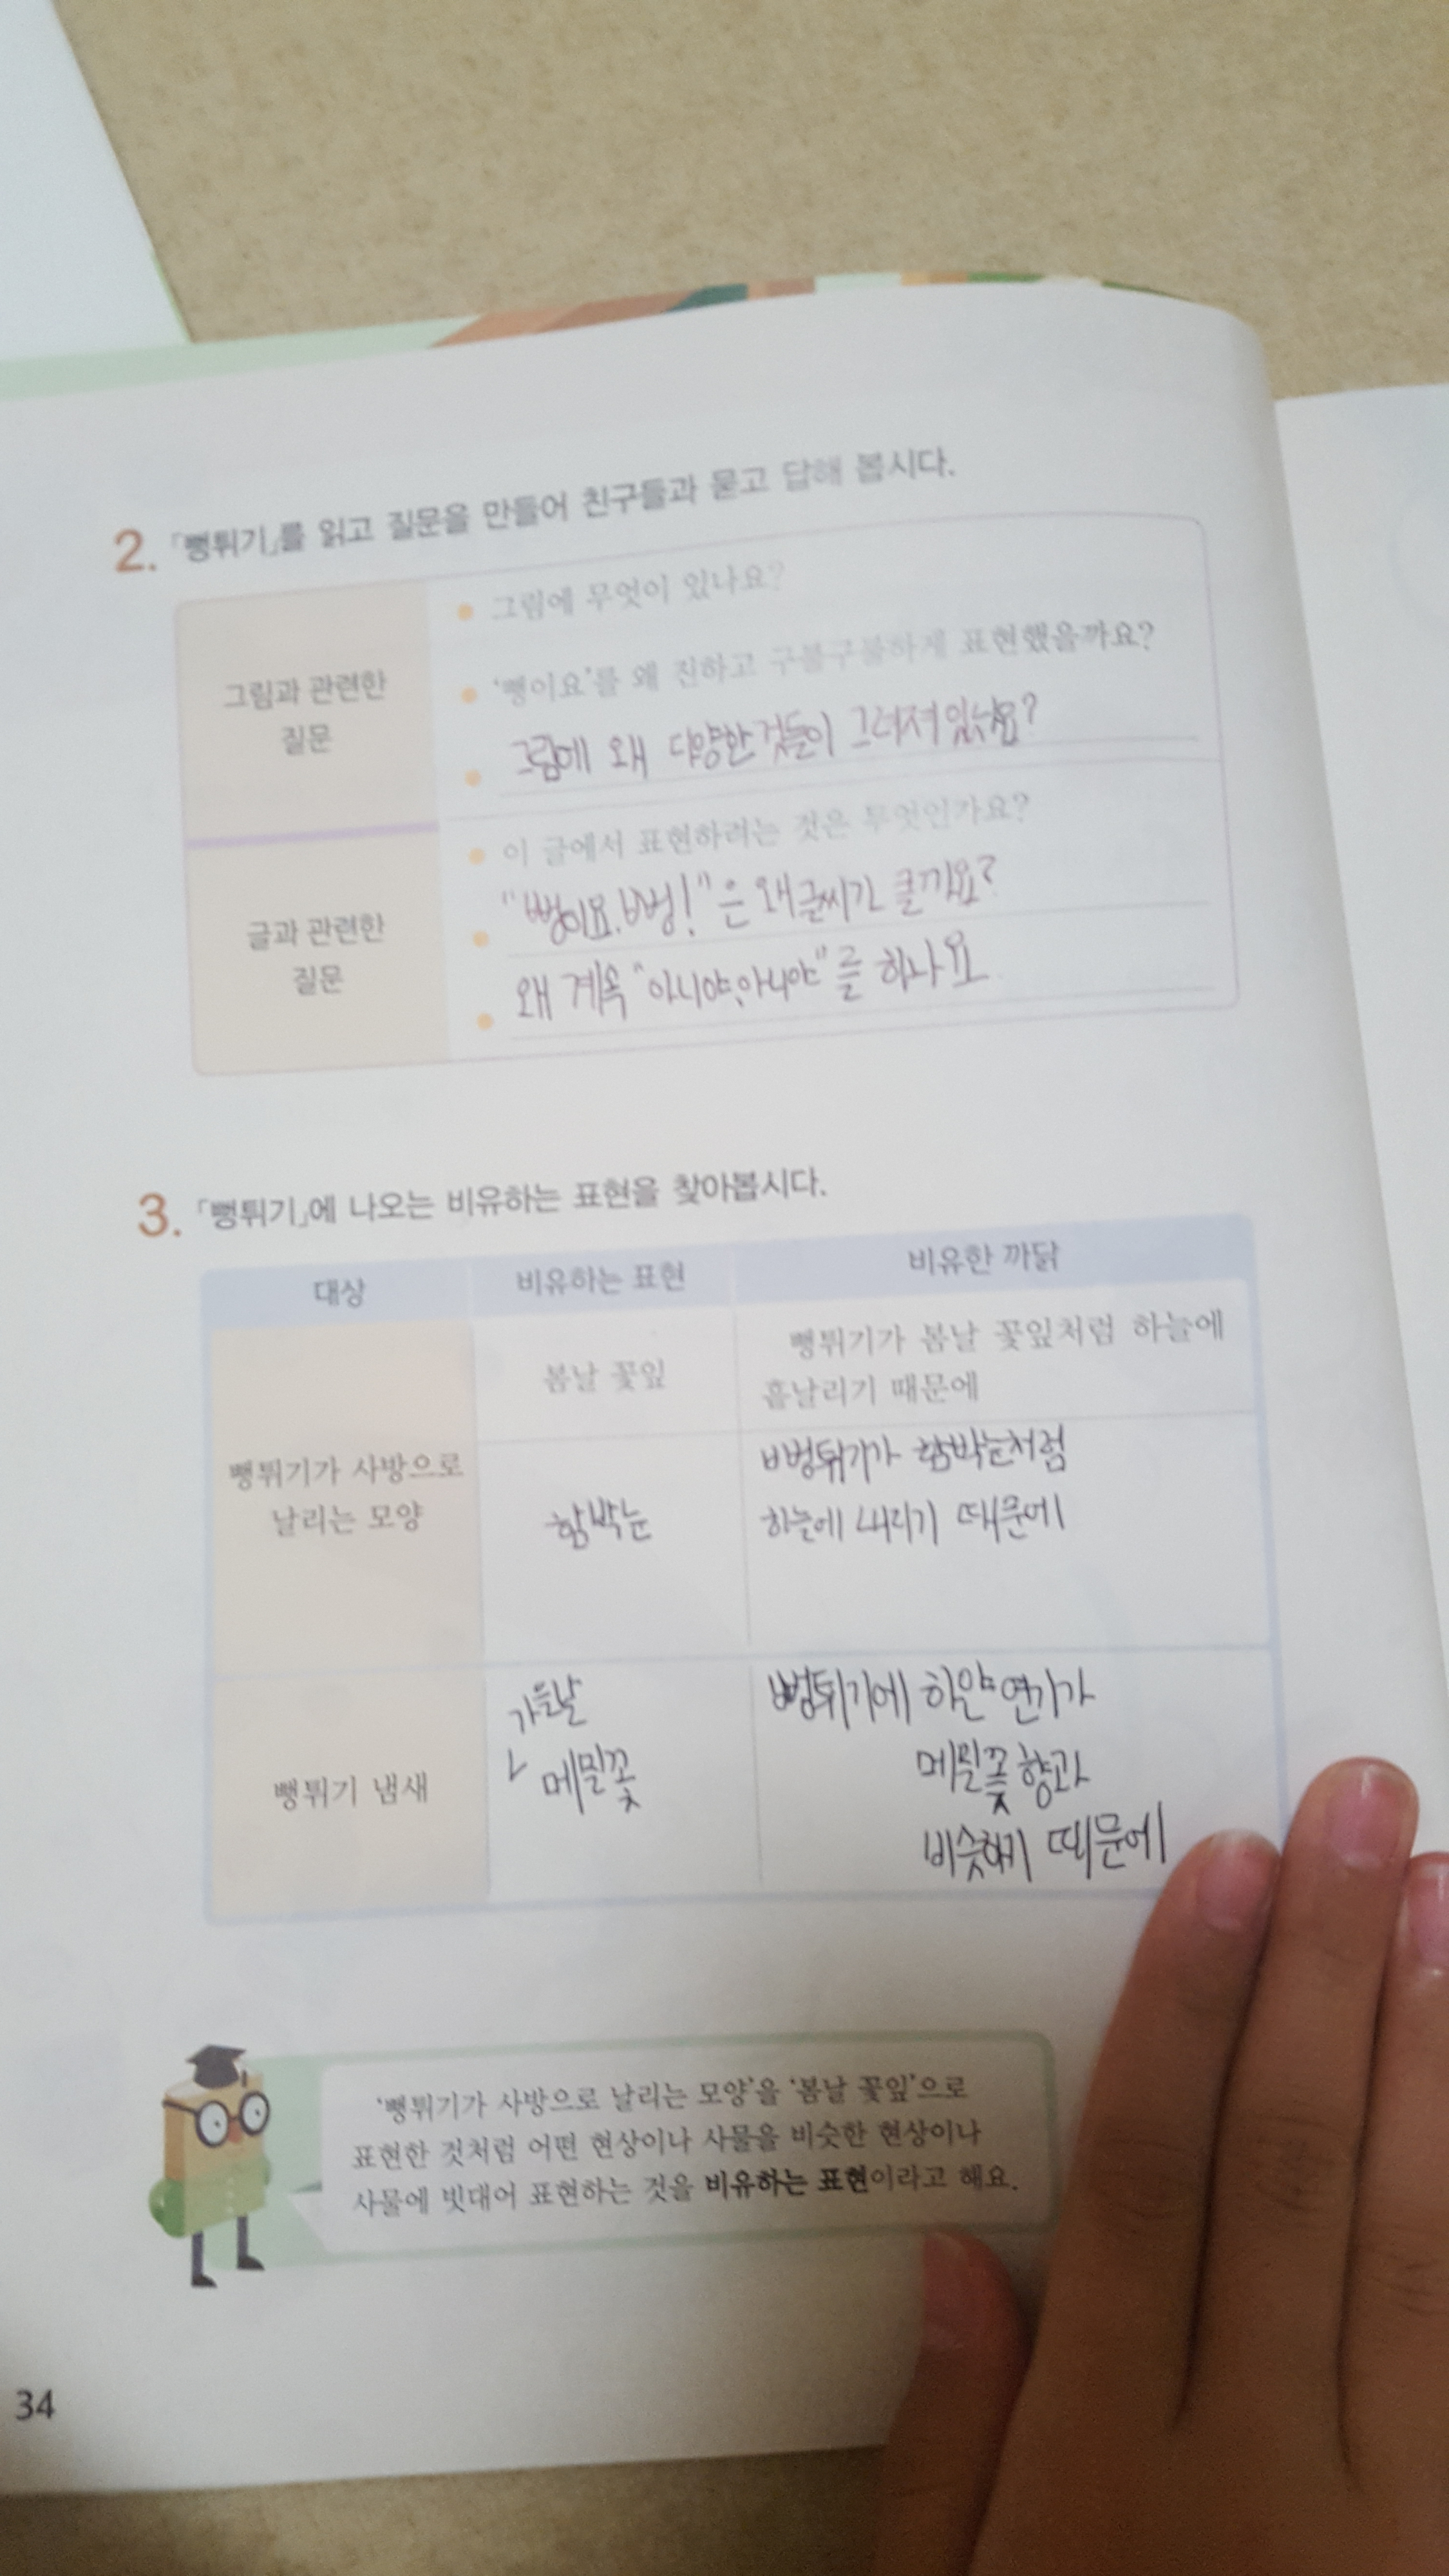 2. 「뻥튀기」를 읽고 질문을 만들어 친구들과 묻고 답해 봅시다.
그림과 관련한
질문
그림에 무엇이 있나요?
'뻥이요'를 왜 진하고 구불구불하게 표현했을까요?
그림에 왜 다양한 것들이 그려져 있나요?
글과 관련한
질문
이 글에서 표현하려는 것은 무엇인가요?
"뻥이요. 뻥!"은 왜 글씨가 클까요?
왜 계속 "아니야, 아니야"를 하나요
3. 「뻥튀기」에 나오는 비유하는 표현을 찾아봅시다.
대상 비유하는 표현 비유한 까닭
뻥튀기가 사방으로
날리는 모양
봄날 꽃잎
뻥튀기가 봄날 꽃잎처럼 하늘에
흩날리기 때문에
함박눈
뻥튀기가 함박눈처럼
하늘에 내리기 때문에
뻥튀기 냄새
가을날
메밀꽃
뻥튀기에 하얀 연기가
메밀꽃 향과
비슷하기 때문에
'뻥튀기가 사방으로 날리는 모양'을 '봄날 꽃잎'으로
표현한 것처럼 어떤 현상이나 사물을 비슷한 현상이나
사물에 빗대어 표현하는 것을 비유하는 표현이라고 해요.
34